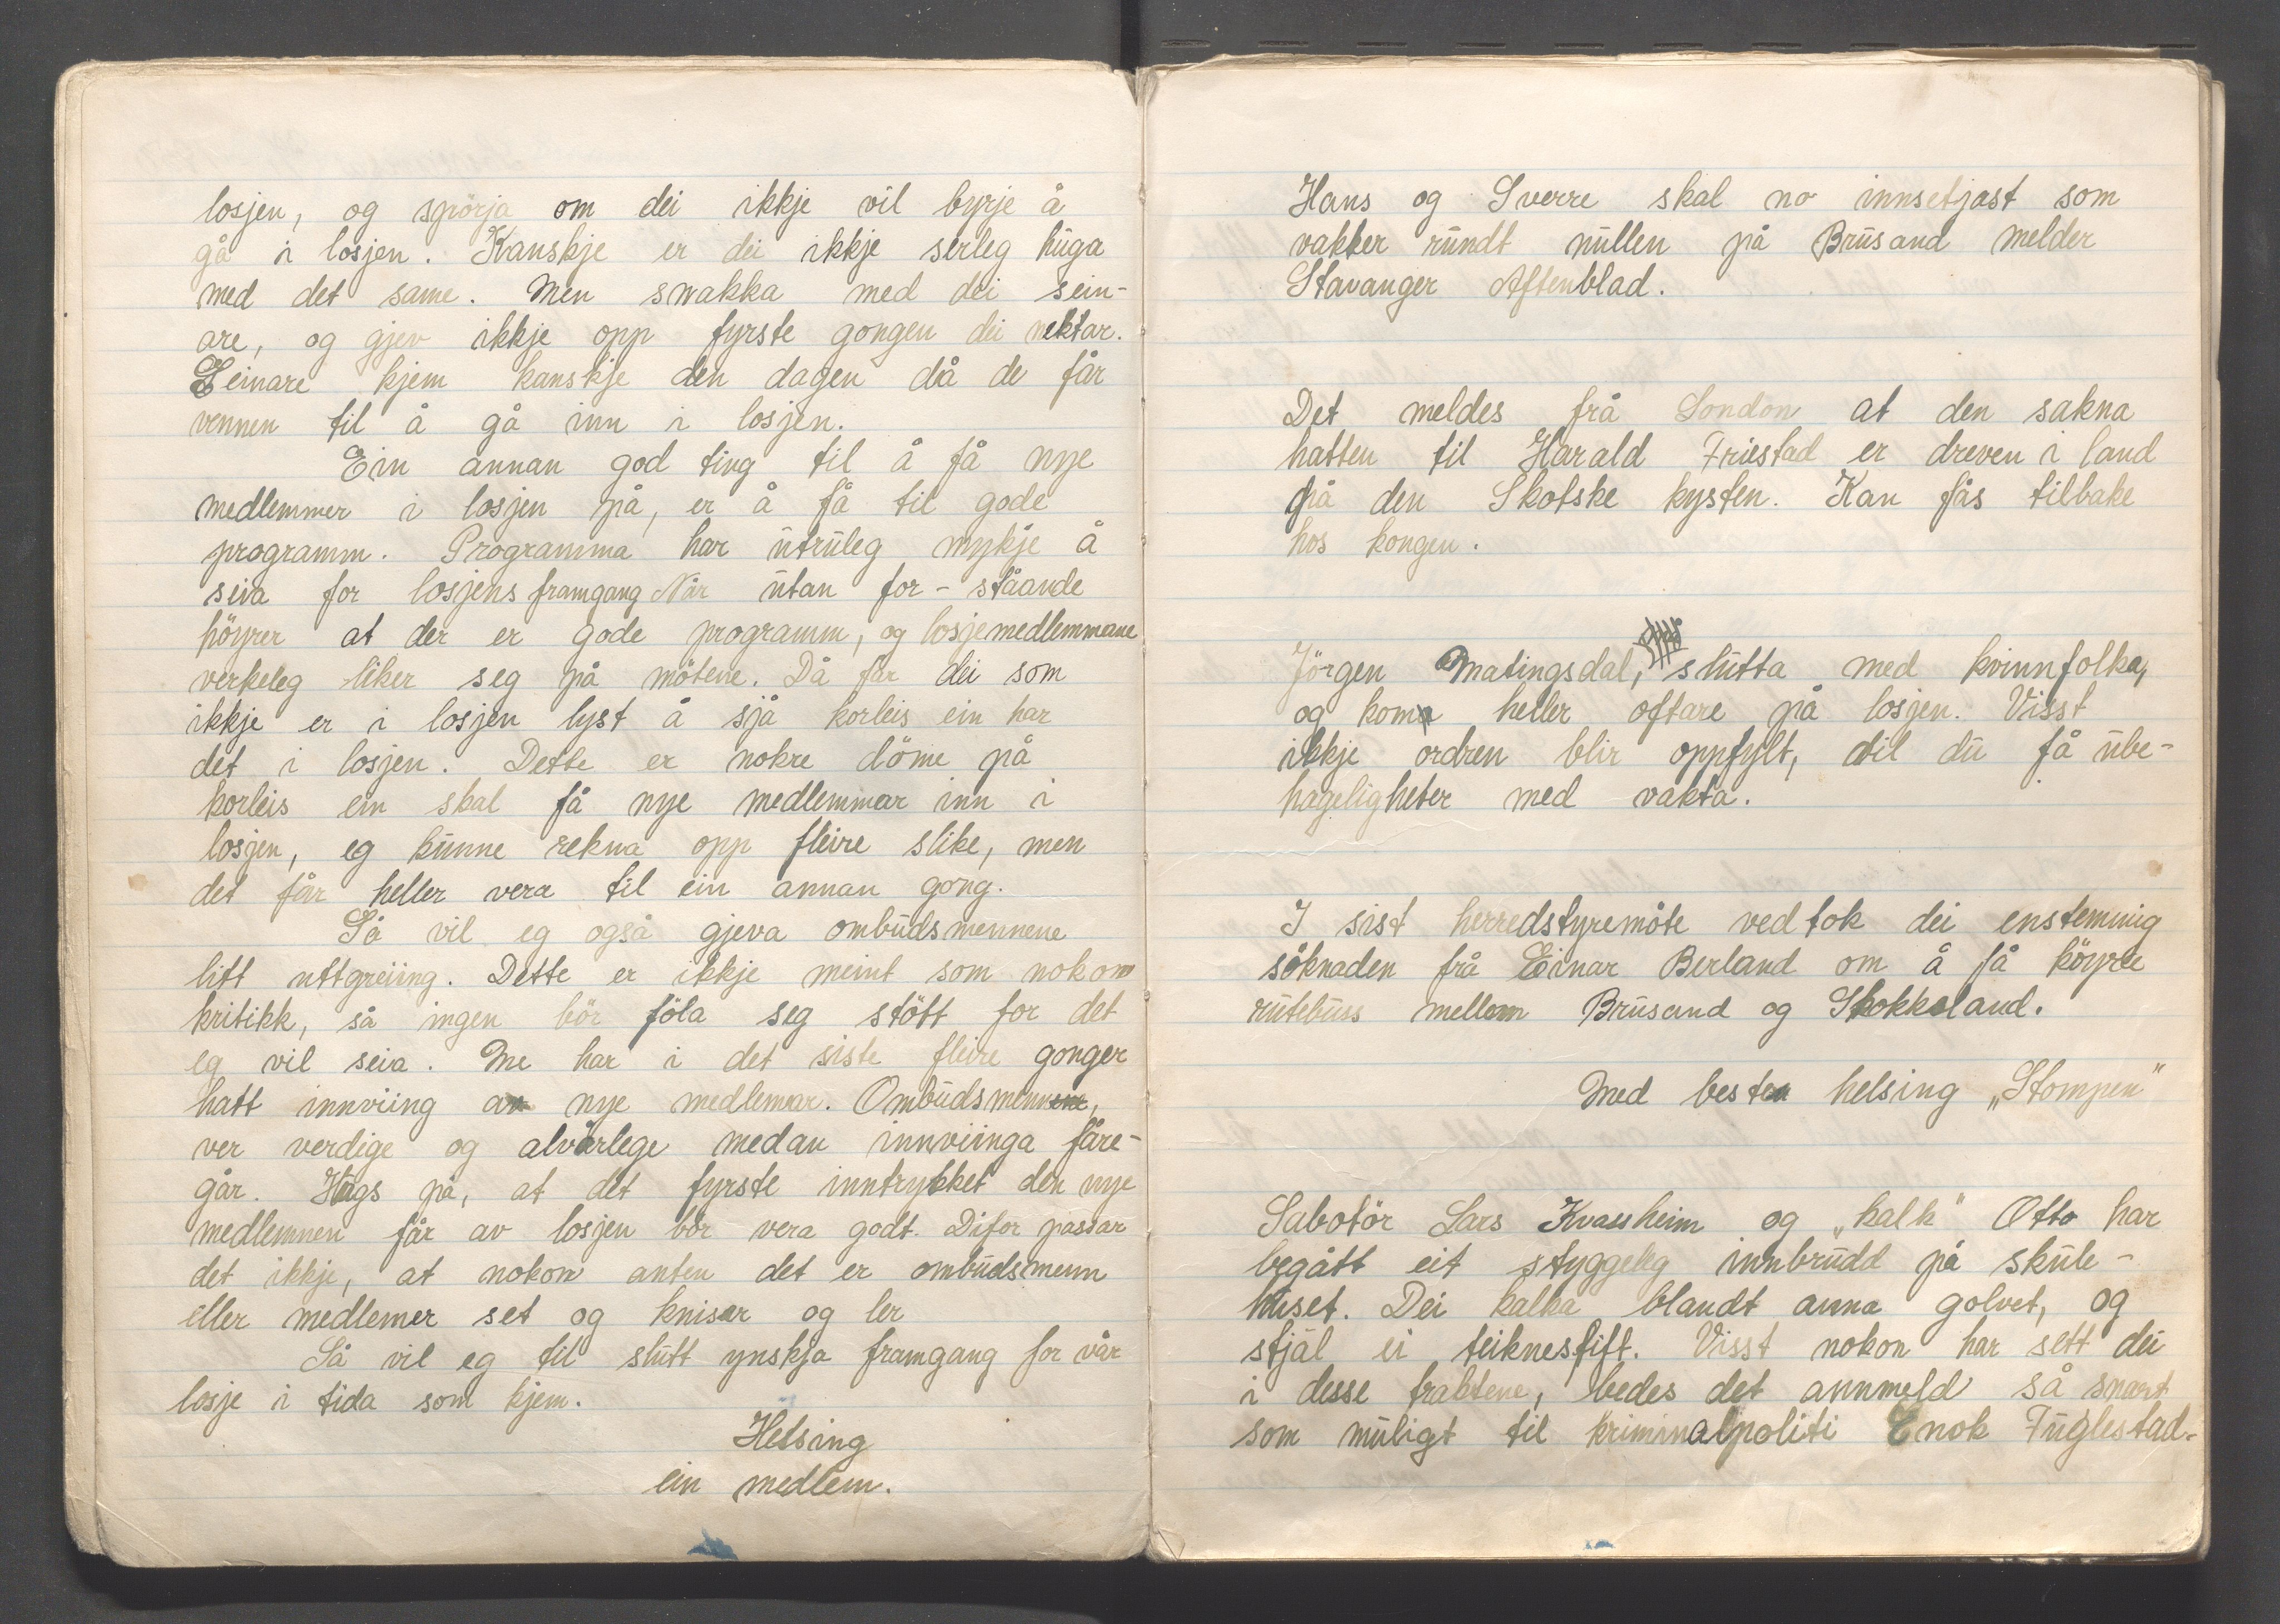 losjen, og spörja om dei ikkje vil byrje å
gå i losjen. Kanskje er dei ikkje serleg huga
med det same. Men snakka med dei sein-
are, og gjev ikkje opp fyrste gongen dei nektar.
Seinare kjem kanskje den dagen då de får
vennen til å gå inn i losjen.
Ein annan god ting til å få nye
medlemmer i losjen på, er å få til gode
programm. Programma har utruleg mykje å
seia for losjens framgang Når utan for - ståande
höyrer at der er gode programm, og losjemedlemmane
verkeleg liker seg på mötene. Då får dei som
ikkje er i losjen lyst å sjå korleis ein har
det i losjen. Dette er nokre döme på
korleis ein skal få nye medlemmar inn i
losjen, eg kunne rekna opp fleire slike, men
det får heller vera til ein annan gong.
Så vil eg også gjeva ombudsmennene
litt uttgreiing. Dette er ikkje meint som nokon
kritikk, så ingen bör föla seg stött for det
eg vil seia. Me har i det siste fleire gonger
hatt innviing av nye medlemar. Ombudsmennene,
ver verdige og alvorlege medan innviinga fåre-
går. Hugs på, at det fyrste inntrykket den nye
medlemnen får av losjen bör vera godt. Difor passar
det ikkje, at nokon anten det er ombudsmenn
eller medlemer set og knisar og ler
Så vil eg til slutt ynskja framgang for vår
losje i tida som kjem.
Helsing
ein medlem.
Hans og Sverre skal no innsetjast som
vakter rundt nullen på Brusand melder
Stavanger Aftenblad.
Det meldes frå London at den sakna
hatten til Harald Friestad er dreven i land
på den Skotske kysten. Kan fås tilbake
hos kongen.
Jörgen Matingsdal, slutta med kvinnfolka,
og koma heller oftare på losjen. Visst
ikkje ordren blir oppfylt, vil du få ube-
hageligheter med vakta.
I sist herredstyremöte vedtok dei enstemmig
söknaden frå Einar Berland om å få köyra
rutebuss mellom Brusand og Stokkaland.
Med beste helsing „Stompen"
Sabotör Lars Kvassheim og „kalk" Otto har
begått eit styggeleg innbrudd på skule-
huset. Dei kalka blandt anna golvet, og
stjål ei teiknestift. Visst nokon har sett dei
i desse traktene, bedes det annmeld så snart
som muligt til kriminalpoliti Enok Fuglestad.